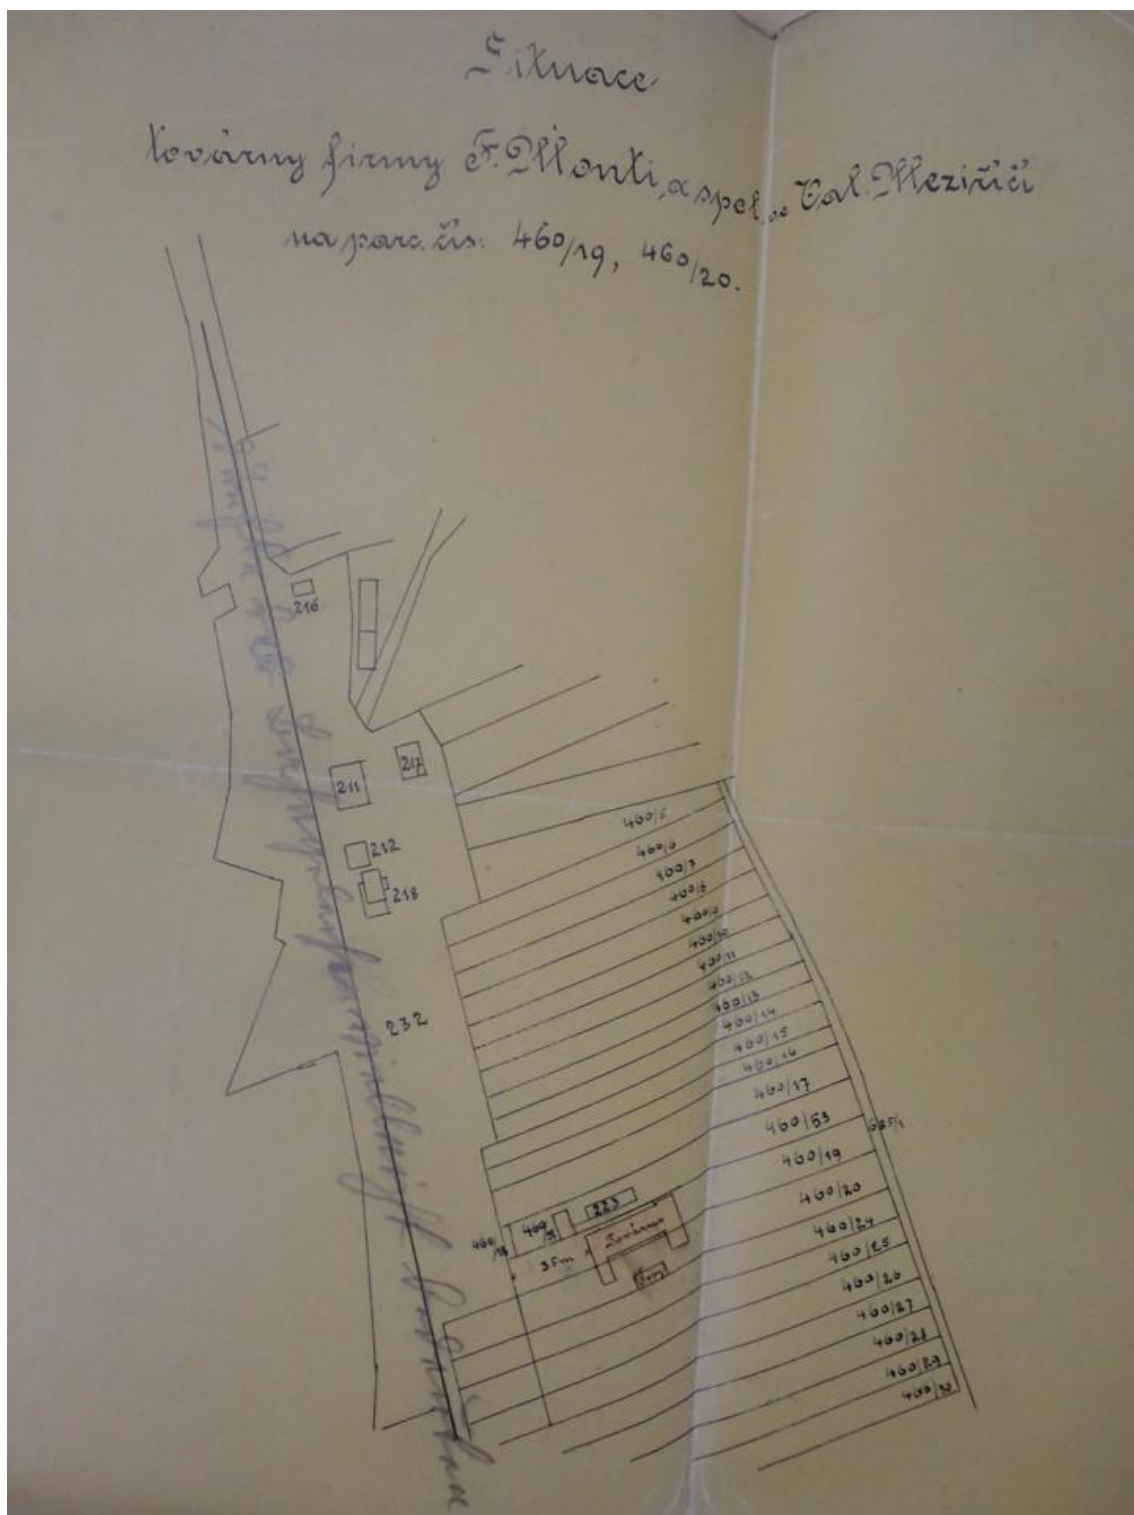 Situace
továrny firmy F. Monti, a spol. ve Val. Meziříčí
na parc. čís: 460/19, 460/20.
216
217
211
212
218
232
460/5
460/6
460/7
460/8
460/9
460/10
460/11
460/12
460/13
460/14
460/15
460/16
460/17
460/53
460/19
460/20
460/24
460/25
460/26
460/27
460/28
460/29
460/30
223
460/
460/18
Továrna
35m